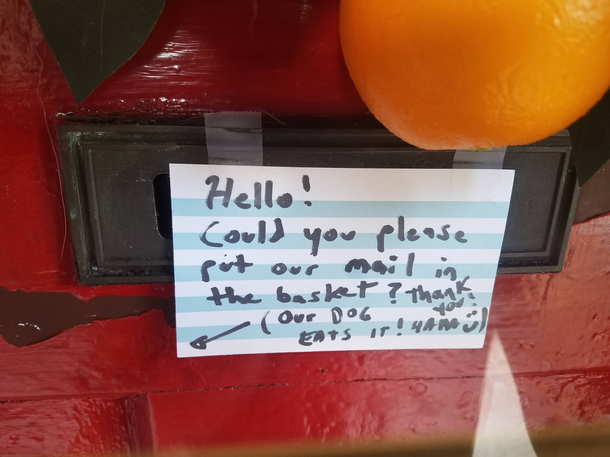 Hello!
Could you please
put our mail in
the basket? Thank you!
(Our DOG
EATS IT! HAHA ☺)